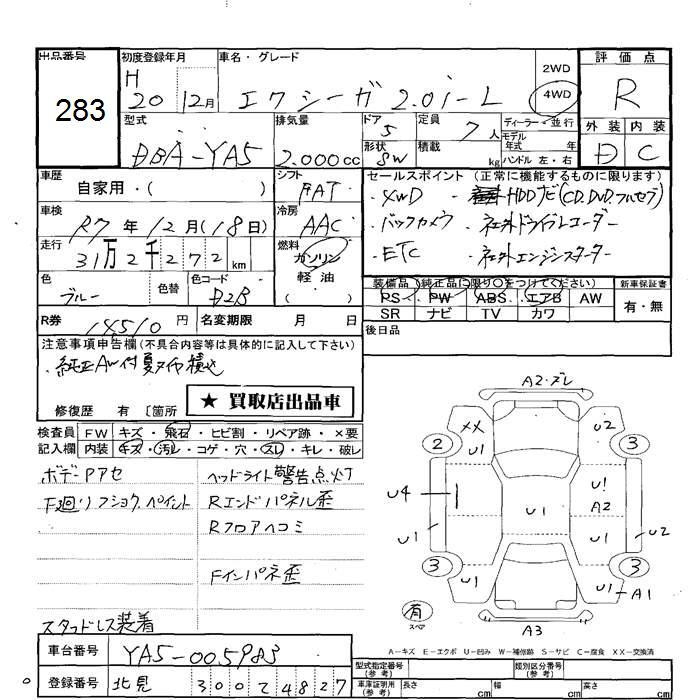 出品番号
283
初度登録年月
H
20 12月
車名・グレード
エクシーガ 2.0i-L
2WD
4WD
評価点
R
外装 内装
D C
型式
DBA-YA5
排気量
2.000cc
ドア 5
形状 SW
定員 7人
積載 kg
ディーラー・並行
モデル
年式 年
ハンドル 左・右
車歴
自家用・( )
シフト
FAT
車検
R7年12月(18日)
冷房
AAC
走行
31万2千272km
燃料
ガソリン
軽油
( )
色
ブルー
色替
色コード
D2B
R券 14510円
名変期限 月 日
セールスポイント (正常に機能するものに限ります)
・4WD ・HDDナビ(CD.DVD.フルセグ)
・バックカメラ ・社外ドライブレコーダー
・ETC ・社外エンジンスターター
装備品 (純正品に限り○をつけてください)
PS PW ABS エアB AW
SR ナビ TV カワ
新車保証書
有・無
後日品
注意事項申告欄(不具合内容等は具体的に記入して下さい)
・純正AW付夏タイヤ積込
修復歴 有 〔箇所
★ 買取店出品車
検査員 FW キズ・飛石・ヒビ割・リペア跡・×要
記入欄 内装 キズ・汚レ・コゲ・穴・スレ・キレ・破レ
ボデーPアセ
ヘッドライト警告点灯
F廻りフショク.ペイント
Rエンドパネル歪
Rフロアヘコミ
Fインパネ歪
スタッドレス装着
車台番号 YA5-005983
登録番号 北見 300 7 4827
A2・ズレ
XX
U1
U2
2
3
U4
U1
A2
U1
U1
U1
U2
3
3
U1
U1
A1
有
スペア
A3
A-キズ E-エクボ U-凹み W-補修跡 S-サビ C-腐食 XX-交換済
型式指定番号
(参考)
類別区分番号
(参考)
車庫証明用
(参考)
長さ cm
幅 cm
高さ cm